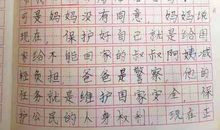 可是妈妈没有同意 妈妈说
现在 保护好自己 就是给国
家给不能回家的叔叔阿姨减
轻负担 爸爸是警察 他的
任务就是维护国家安全 保
护公民的人身权利 现在正